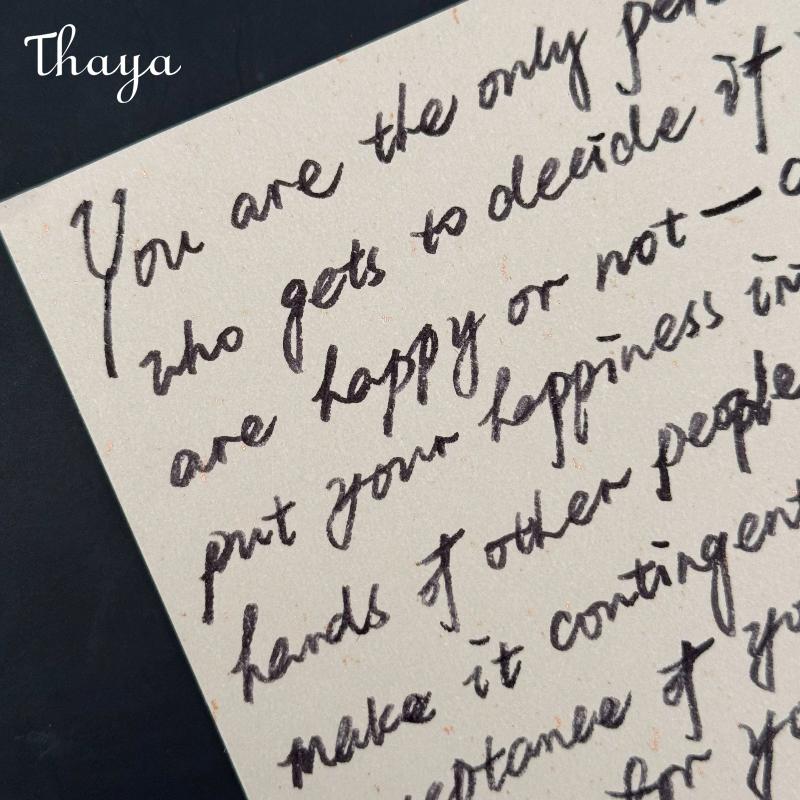 Thaya
You are the only
who gets to decide if
are happy or not —
put your happiness in
hands of other people
make it contingent
of
for